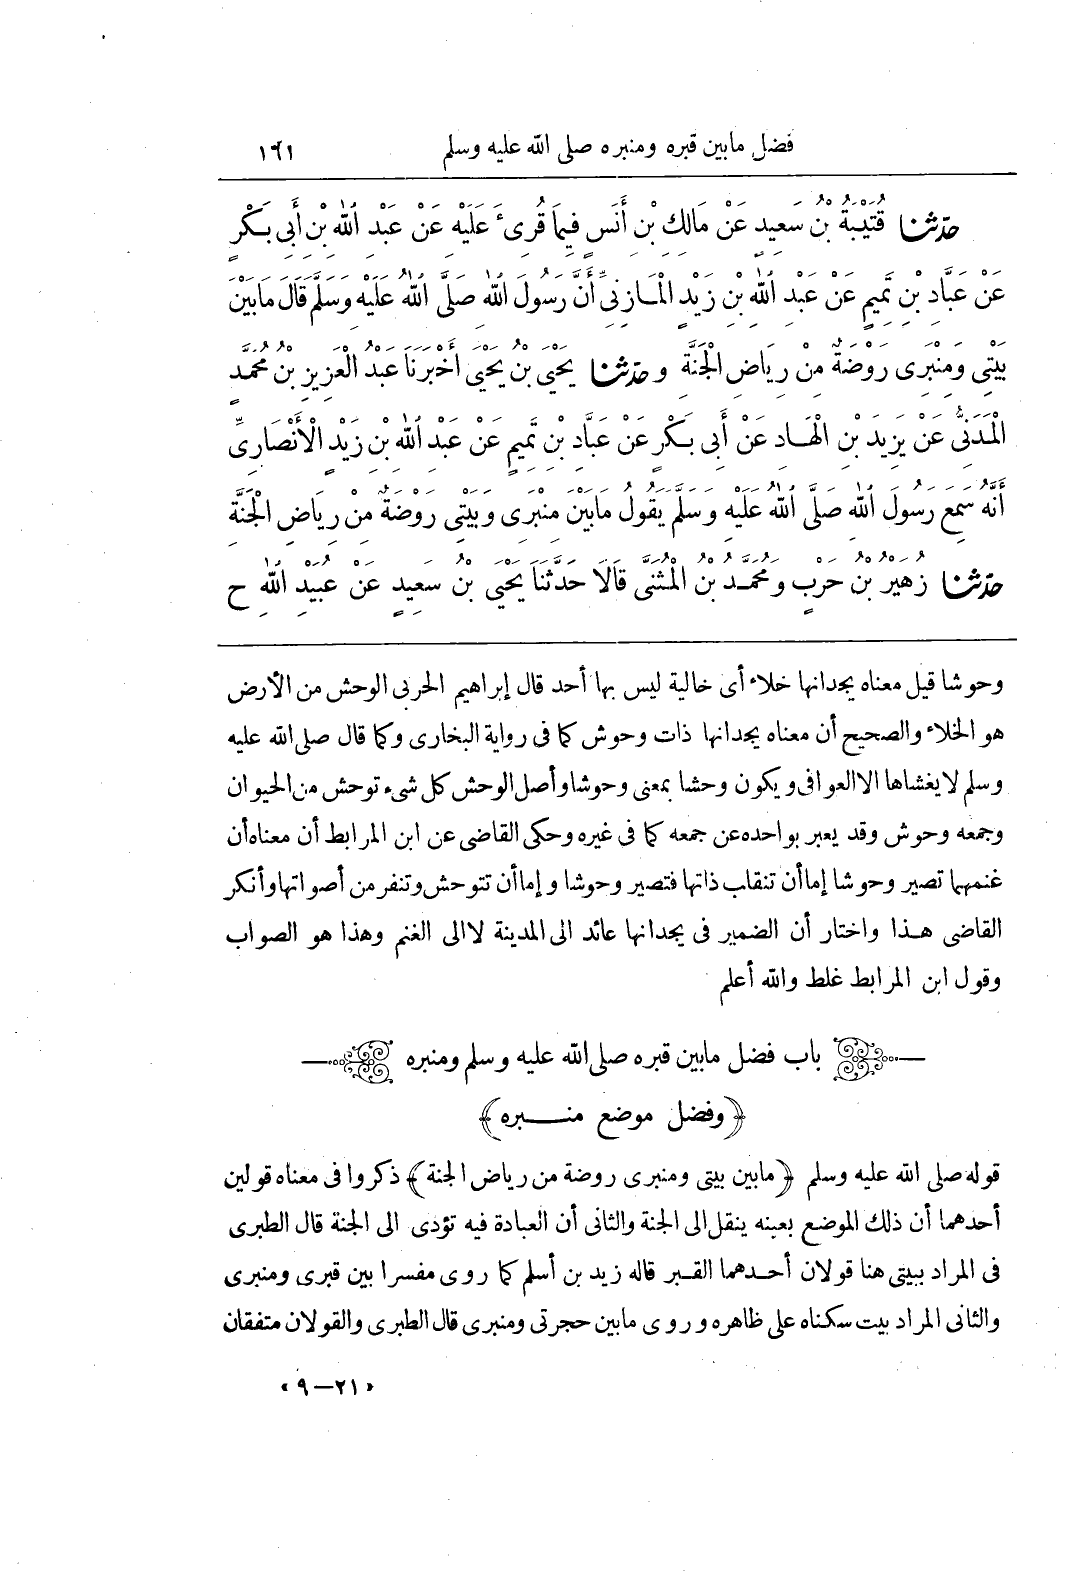 فضل مابين قبره ومنبره صلى الله عليه وسلم ١٦١
حَدَّثَنَا قُتَيْبَةُ بْنُ سَعِيدٍ عَنْ مَالِكِ بْنِ أَنَسٍ فِيمَا قُرِئَ عَلَيْهِ عَنْ عَبْدِ اللهِ بْنِ أَبِى بَكْرٍ
عَنْ عَبَّادِ بْنِ تَمِيمٍ عَنْ عَبْدِ اللهِ بْنِ زَيْدٍ الْمَازِنِىِّ أَنَّ رَسُولَ اللهِ صَلَّى اللهُ عَلَيْهِ وَسَلَّمَ قَالَ مَابَيْنَ
بَيْتِى وَمِنْبَرِى رَوْضَةٌ مِنْ رِيَاضِ الْجَنَّةِ وحَدَّثَنَا يَحْيَى بْنُ يَحْيَى أَخْبَرَنَا عَبْدُ الْعَزِيزِ بْنُ مُحَمَّدٍ
الْمَدَنِىُّ عَنْ يَزِيدَ بْنِ الْهَادِ عَنْ أَبِى بَكْرٍ عَنْ عَبَّادِ بْنِ تَمِيمٍ عَنْ عَبْدِ اللهِ بْنِ زَيْدٍ الْأَنْصَارِىِّ
أَنَّهُ سَمِعَ رَسُولَ اللهِ صَلَّى اللهُ عَلَيْهِ وَسَلَّمَ يَقُولُ مَابَيْنَ مِنْبَرِى وَبَيْتِى رَوْضَةٌ مِنْ رِيَاضِ الْجَنَّةِ
حَدَّثَنَا زُهَيْرُ بْنُ حَرْبٍ وَمُحَمَّدُ بْنُ الْمُثَنَّى قَالَا حَدَّثَنَا يَحْيَى بْنُ سَعِيدٍ عَنْ عُبَيْدِ اللهِ ح
وحوشا قيل معناه يجدانها خلاء أى خالية ليس بها أحد قال إبراهيم الحربى الوحش من الأرض
هو الخلاء والصحيح أن معناه يجدانها ذات وحوش كما فى رواية البخارى وكما قال صلى الله عليه
وسلم لا يغشاها الا العوافى ويكون وحشا بمعنى وحوشا وأصل الوحش كل شىء توحش من الحيوان
وجمعه وحوش وقد يعبر بواحده عن جمعه كما فى غيره وحكى القاضى عن ابن المرابط أن معناه أن
غنمهما تصير وحوشا إما أن تنقلب ذاتها فتصير وحوشا وإما أن تتوحش وتنفر من أصواتها وأنكر
القاضى هذا واختار أن الضمير فى يجدانها عائد الى المدينة لا الى الغنم وهذا هو الصواب
وقول ابن المرابط غلط والله أعلم
باب فضل مابين قبره صلى الله عليه وسلم ومنبره
﴿وفضل موضع منبره﴾
قوله صلى الله عليه وسلم ﴿مابين بيتى ومنبرى روضة من رياض الجنة﴾ ذكروا فى معناه قولين
أحدهما أن ذلك الموضع بعينه ينقل الى الجنة والثانى أن العبادة فيه تؤدى الى الجنة قال الطبرى
فى المراد ببيتى هنا قولان أحدهما القبر قاله زيد بن أسلم كما روى مفسرا بين قبرى ومنبرى
والثانى المراد بيت سكناه على ظاهره وروى مابين حجرتى ومنبرى قال الطبرى والقولان متفقان
«٢١-٩»